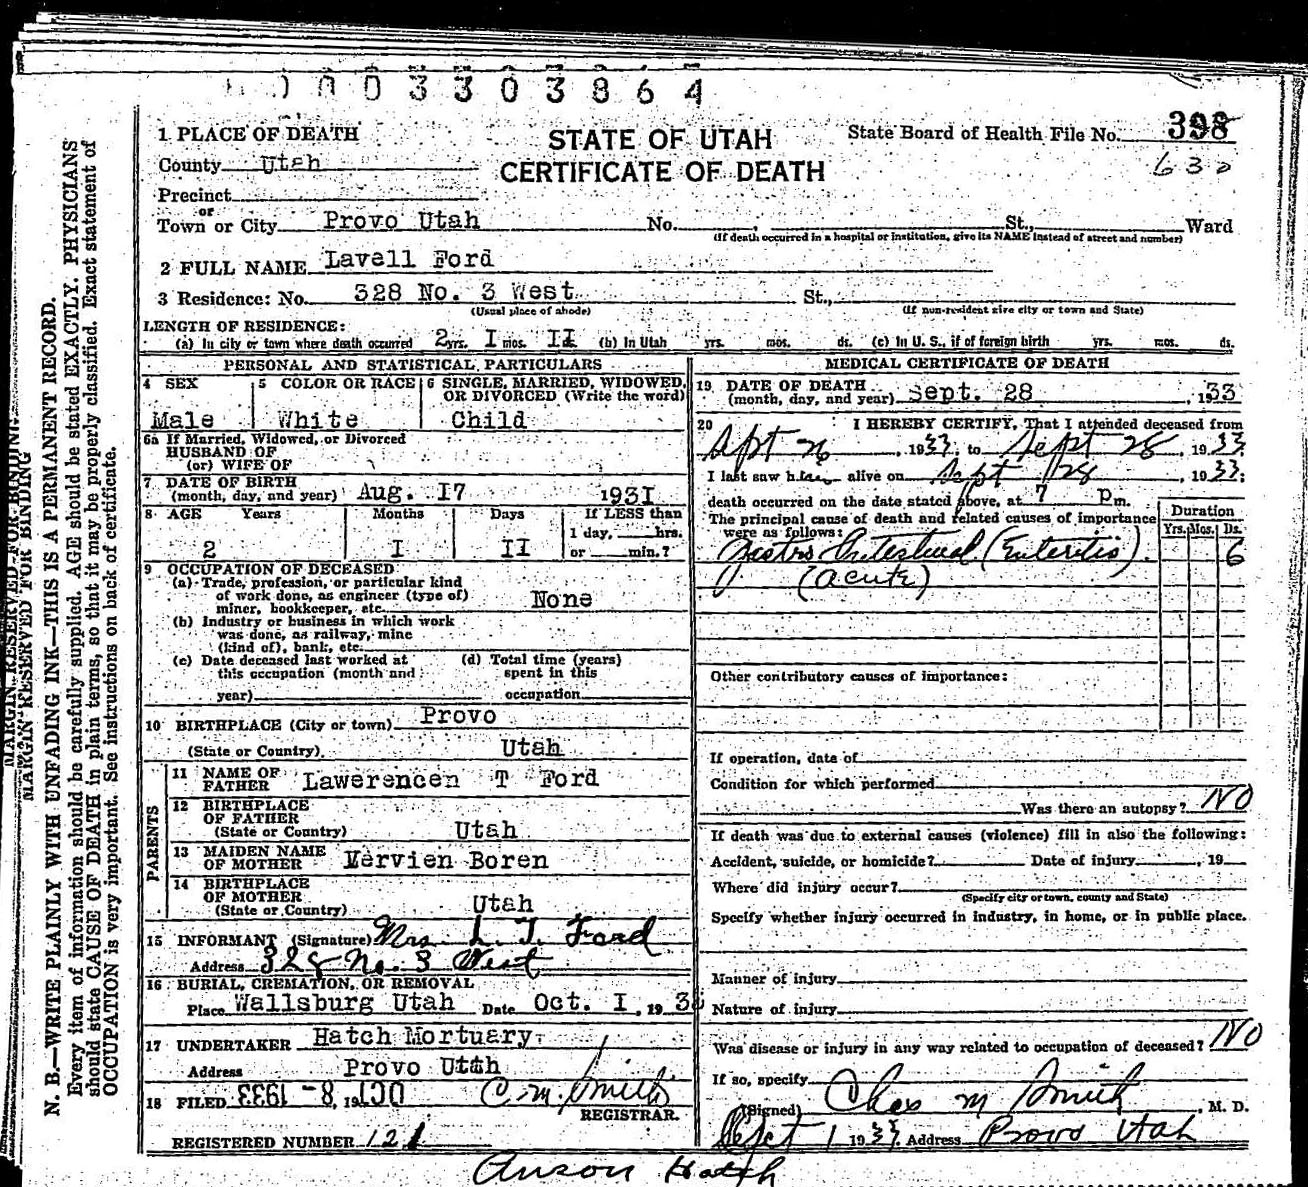 0003303864
1 PLACE OF DEATH
STATE OF UTAH
CERTIFICATE OF DEATH
State Board of Health File No. 398
630
County Utah
Precinct
or
Town or City Provo Utah No. , St., Ward
(If death occurred in a hospital or institution, give its NAME instead of street and number)
2 FULL NAME Lavell Ford
3 Residence: No. 328 No. 3 West St.,
(Usual place of abode) (If non-resident give city or town and State)
LENGTH OF RESIDENCE:
(a) In city or town where death occurred 2 yrs. I mos. II ds. (b) In Utah yrs. mos. ds. (c) In U. S., if of foreign birth yrs. mos. ds.
PERSONAL AND STATISTICAL PARTICULARS
4 SEX Male
5 COLOR OR RACE White
6 SINGLE, MARRIED, WIDOWED, OR DIVORCED (Write the word) Child
6a If Married, Widowed, or Divorced
HUSBAND OF
(or) WIFE OF
7 DATE OF BIRTH
(month, day, and year) Aug. I7 193I
8 AGE Years Months Days If LESS than
1 day, hrs.
2 I II or min.?
9 OCCUPATION OF DECEASED
(a) Trade, profession, or particular kind
of work done, as engineer (type of)
miner, bookkeeper, etc. None
(b) Industry or business in which work
was done, as railway, mine
(kind of), bank, etc.
(c) Date deceased last worked at
this occupation (month and
year)
(d) Total time (years)
spent in this
occupation
10 BIRTHPLACE (City or town) Provo
(State or Country) Utah
PARENTS
11 NAME OF
FATHER Lawerencen T Ford
12 BIRTHPLACE
OF FATHER
(State or Country) Utah
13 MAIDEN NAME
OF MOTHER Mervien Boren
14 BIRTHPLACE
OF MOTHER
(State or Country) Utah
15 INFORMANT (Signature) Mrs. L. T. Ford
Address 328 No. 3 West
16 BURIAL, CREMATION, OR REMOVAL
Place Wallsburg Utah Date Oct. I, 193
17 UNDERTAKER Hatch Mortuary
Address Provo Utah
18 FILED OCT 8 - 1933, 19 C. M. Smith
REGISTRAR.
REGISTERED NUMBER 121
MEDICAL CERTIFICATE OF DEATH
19 DATE OF DEATH
(month, day, and year) Sept. 28, 1933
20 I HEREBY CERTIFY, That I attended deceased from
Sept 26, 1933, to Sept 28, 1933
I last saw him alive on Sept 28, 1933;
death occurred on the date stated above, at 7 p m.
The principal cause of death and related causes of importance
were as follows:
Duration
Yrs. Mos. Ds.
Gastro Intestinal (Enteritis) 6
(acute)
Other contributory causes of importance:
If operation, date of
Condition for which performed
Was there an autopsy? NO
If death was due to external causes (violence) fill in also the following:
Accident, suicide, or homicide? Date of injury , 19
Where did injury occur?
(Specify city or town, county and State)
Specify whether injury occurred in industry, in home, or in public place.
Manner of injury
Nature of injury
Was disease or injury in any way related to occupation of deceased? NO
If so, specify
(Signed) Chas M Smith, M. D.
Oct 1 1933, Address Provo Utah
Anson Hatch
MARGIN RESERVED FOR BINDING
MARGIN RESERVED FOR BINDING
N. B.—WRITE PLAINLY WITH UNFADING INK—THIS IS A PERMANENT RECORD.
Every item of information should be carefully supplied. AGE should be stated EXACTLY. PHYSICIANS
should state CAUSE OF DEATH in plain terms, so that it may be properly classified. Exact statement of
OCCUPATION is very important. See instructions on back of certificate.